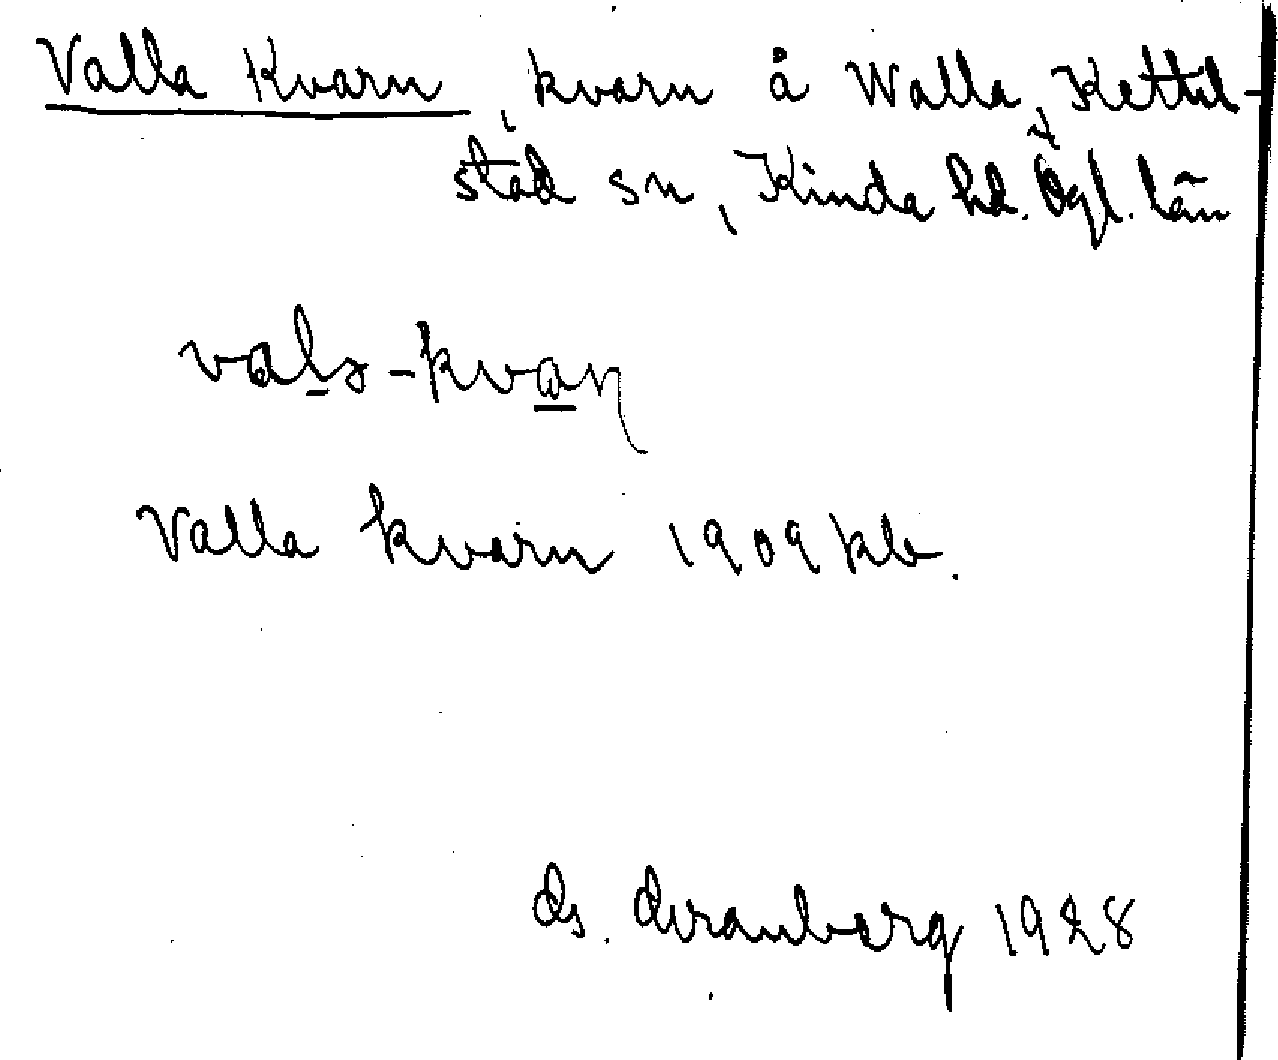 Valla Kvarn, kvarn å Walla, Kettil-
stad sn, Kinda hd. Ögl. län
vals-kvaɳ
Valla kvarn 1909 kb.
1928